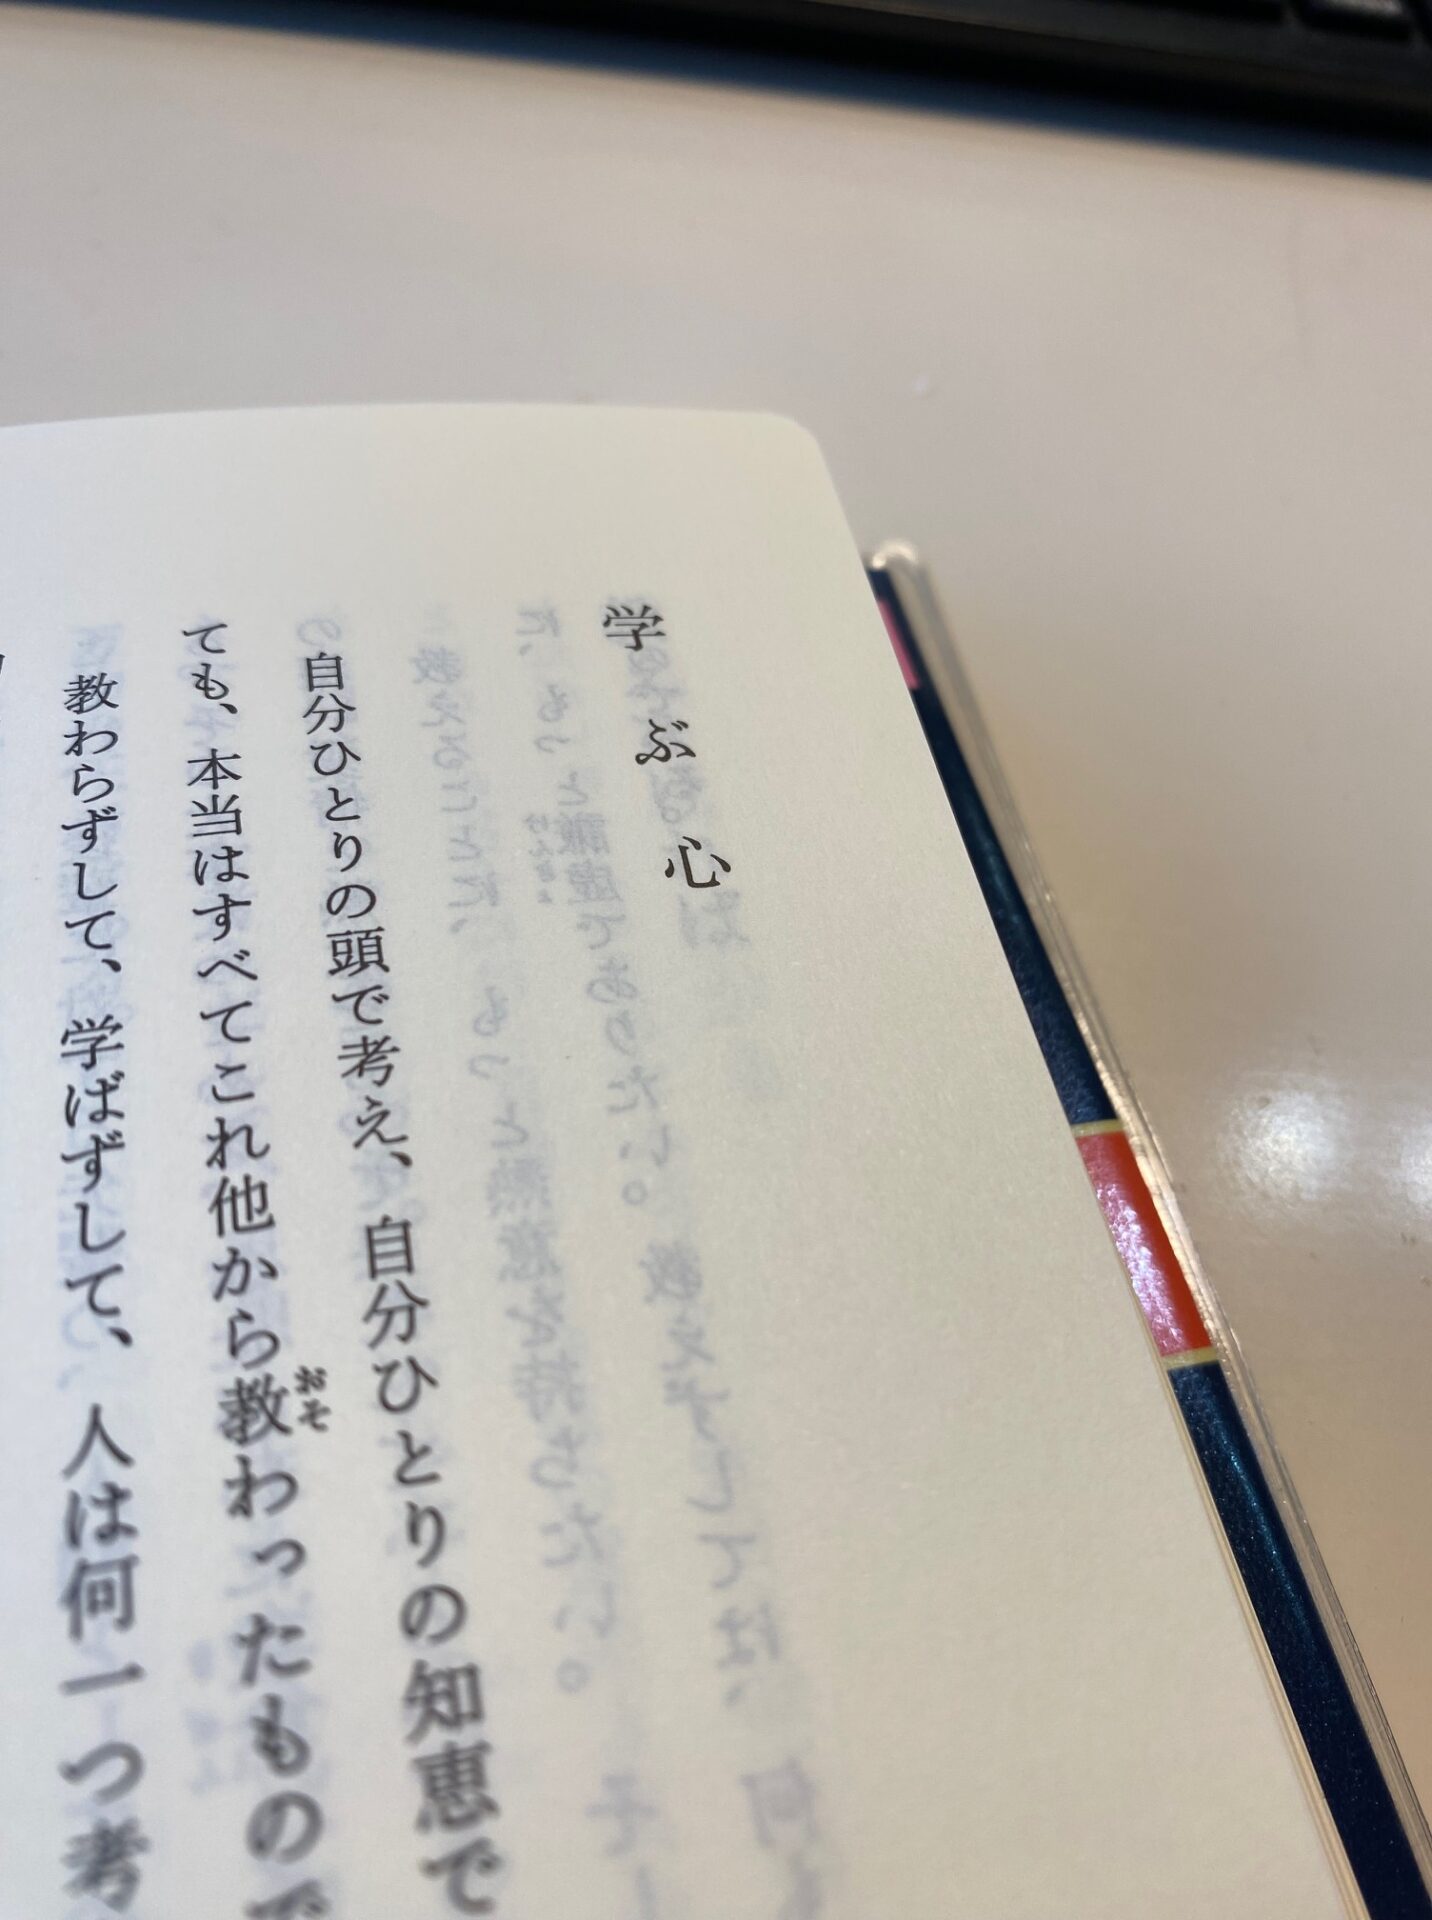 学ぶ心
自分ひとりの頭で考え、自分ひとりの知恵で
ても、本当はすべてこれ他から教わったもので
おそ
教わらずして、学ばずして、人は何一つ考